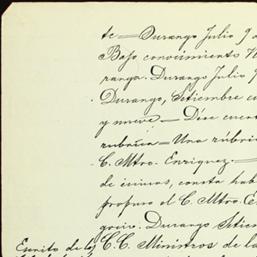 te = Durango Julio 9
Bajo conocimiento
ranga. Durango Julio
Durango, Setiembre
y nueve = Dice
rúbrica = Una
C. Mtro. Enriquez =
de consta
propuso el C. Mtro.
greiro. Durango
Escrito de los C.C. Ministros de la